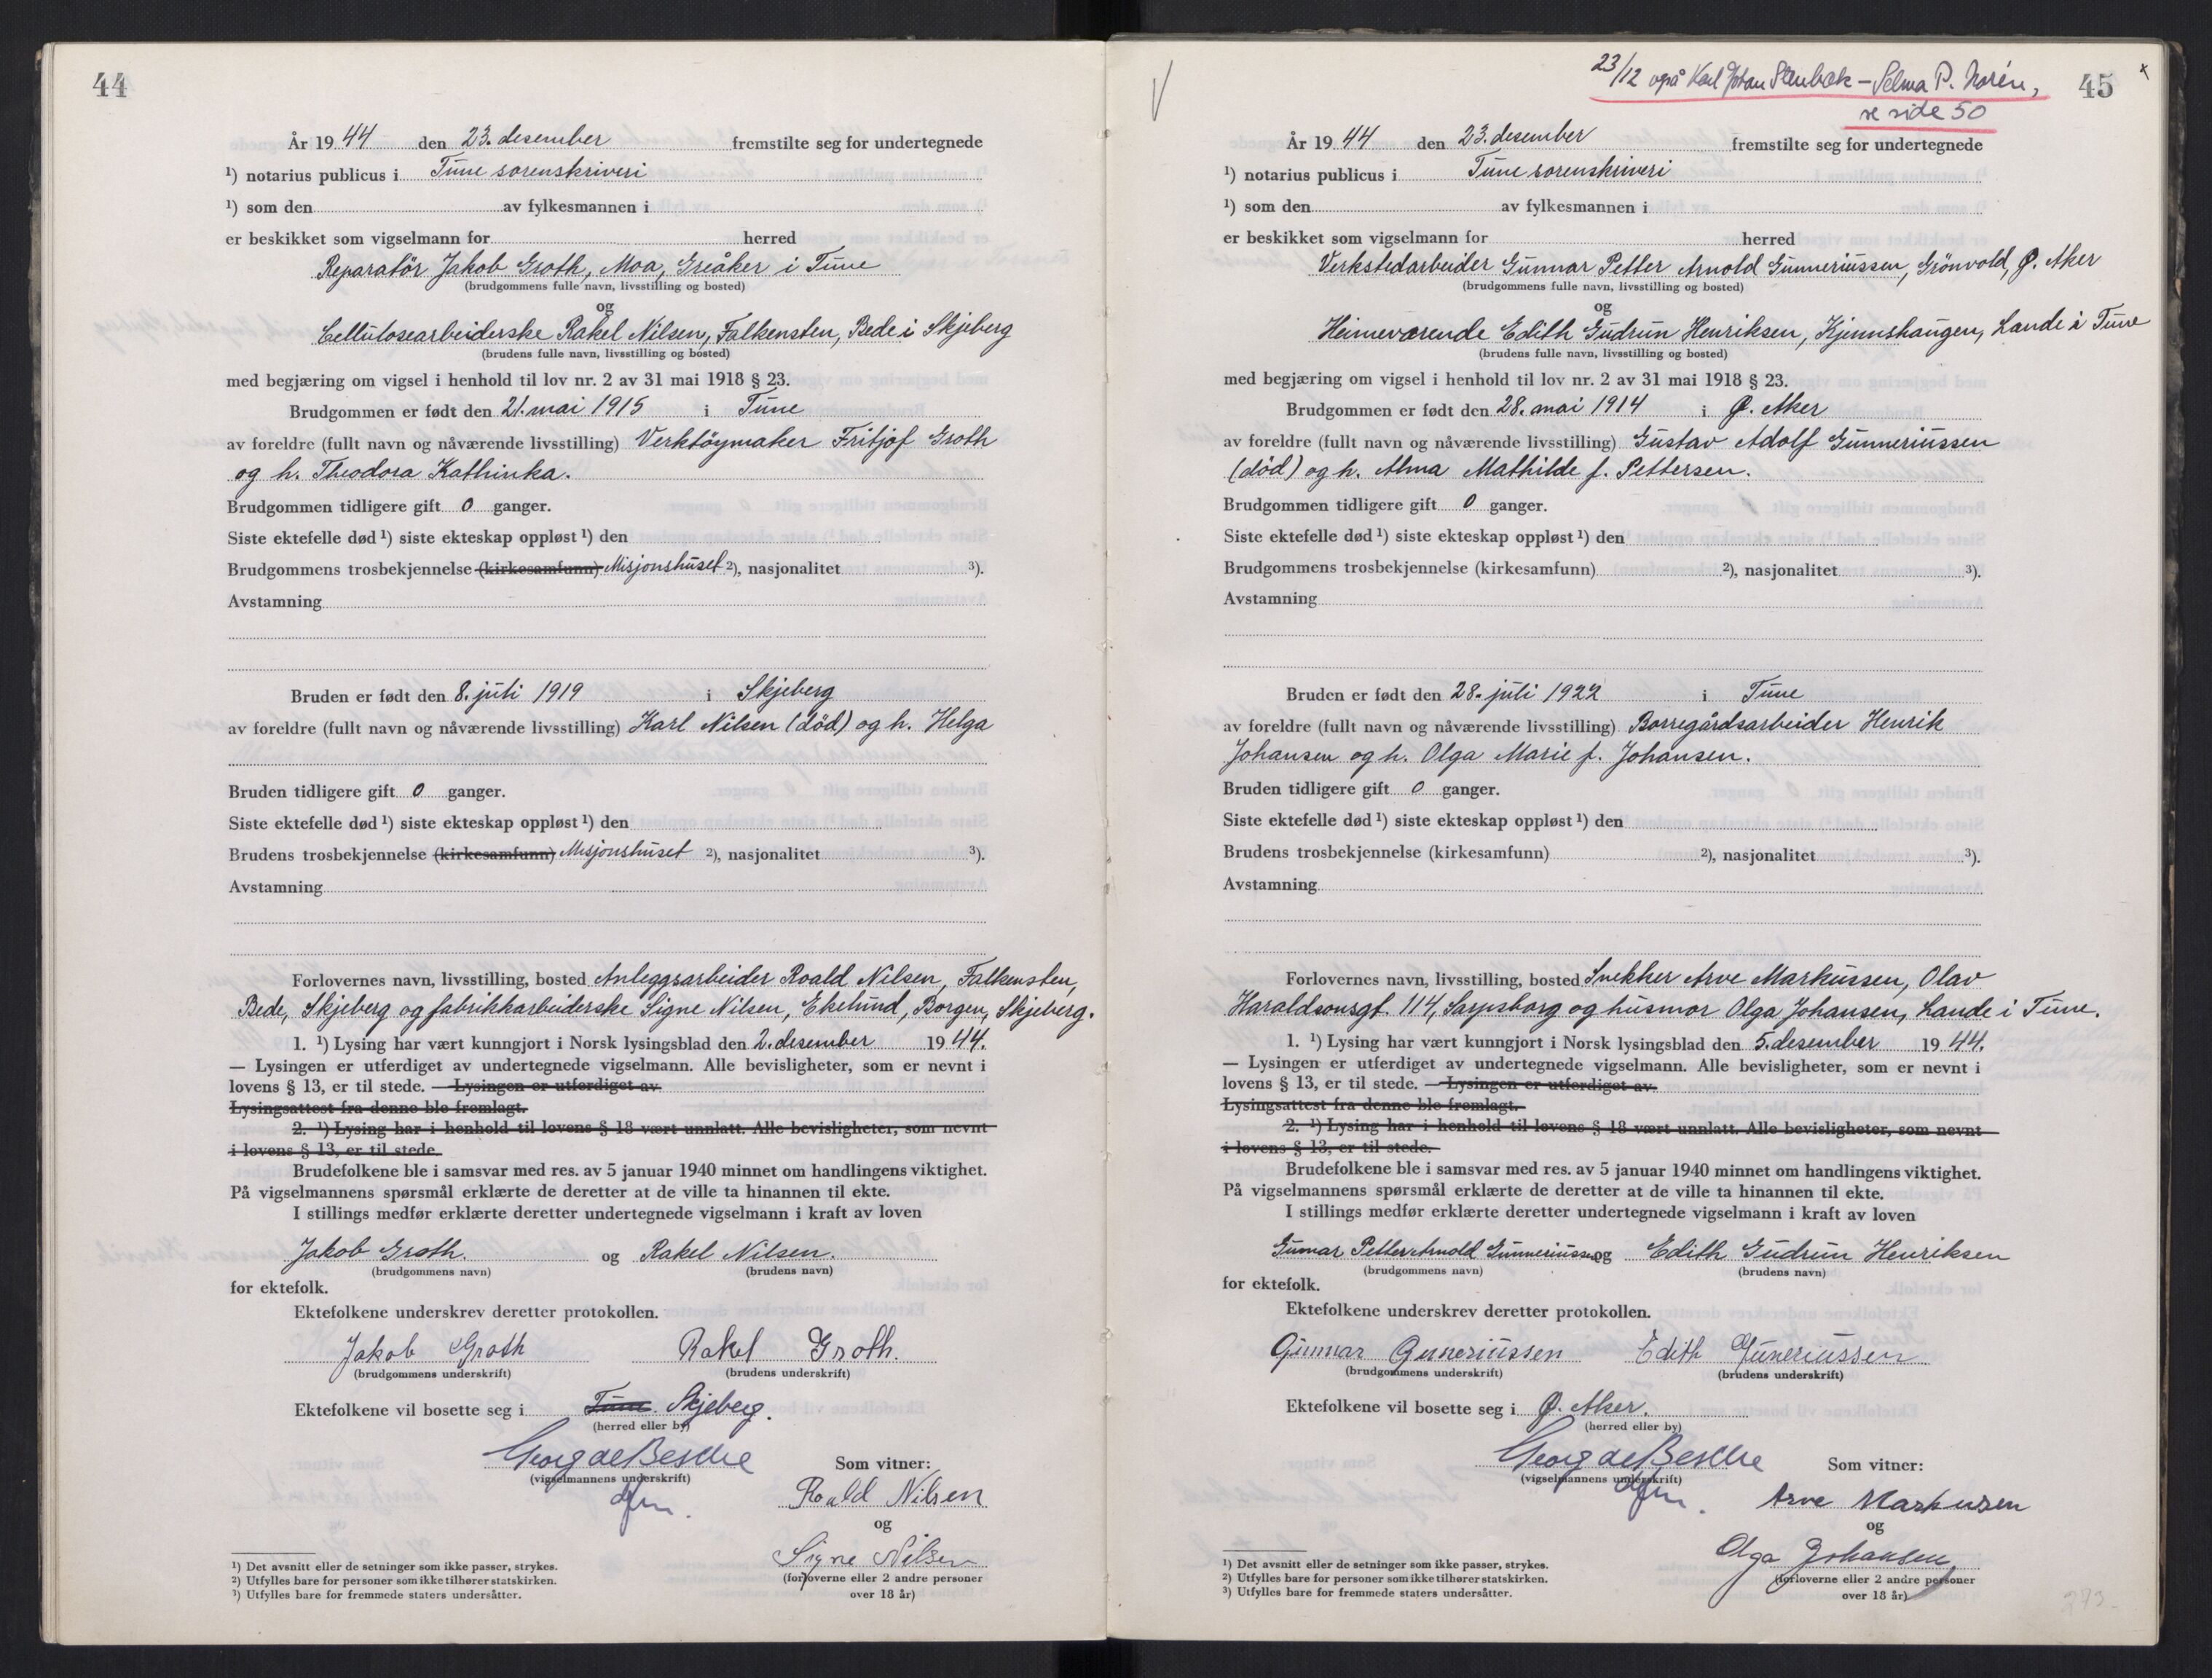 44
År 1944 den 23. desember fremstilte seg for undertegnede
¹) notarius publicus i Tune sorenskriveri
¹) som den av fylkesmannen i
er beskikket som vigselmann for herred
Reparatör Jakob Groth, Moa, Greåker i Tune
(brudgommens fulle navn, livsstilling og bosted)
og
Cellulosearbeiderske Rakel Nilsen, Falkensten, Bede i Skjeberg
(brudens fulle navn, livsstilling og bosted)
med begjæring om vigsel i henhold til lov nr. 2 av 31 mai 1918 § 23.
Brudgommen er født den 21. mai 1915 i Tune
av foreldre (fullt navn og nåværende livsstilling) Verktöymaker Fritjof Groth
og h. Theodora Kathinka.
Brudgommen tidligere gift 0 ganger.
Siste ektefelle død ¹) siste ekteskap oppløst ¹) den
Brudgommens trosbekjennelse (kirkesamfunn) Misjonshuset ²), nasjonalitet ³).
Avstamning
Bruden er født den 8. juli 1919 i Skjeberg
av foreldre (fullt navn og nåværende livsstilling) Karl Nilsen (död) og h. Helga
Bruden tidligere gift 0 ganger.
Siste ektefelle død ¹) siste ekteskap oppløst ¹) den
Brudens trosbekjennelse (kirkesamfunn) Misjonshuset ²), nasjonalitet ³).
Avstamning
Forlovernes navn, livsstilling, bosted Anleggsarbeider Roald Nilsen, Falkensten,
Bede, Skjeberg og fabrikkarbeiderske Signe Nilsen, Ekelund, Borgen, Skjeberg.
1. ¹) Lysing har vært kunngjort i Norsk lysingsblad den 2. desember 1944.
— Lysingen er utferdiget av undertegnede vigselmann. Alle bevisligheter, som er nevnt i
lovens § 13, er til stede. — Lysingen er utferdiget av
Lysingsattest fra denne ble fremlagt.
2. ¹) Lysing har i henhold til lovens § 18 vært unnlatt. Alle bevisligheter, som nevnt
i lovens § 13, er til stede.
Brudefolkene ble i samsvar med res. av 5 januar 1940 minnet om handlingens viktighet.
På vigselmannens spørsmål erklærte de deretter at de ville ta hinannen til ekte.
I stillings medfør erklærte deretter undertegnede vigselmann i kraft av loven
Jakob Groth. og Rakel Nilsen.
(brudgommens navn) (brudens navn)
for ektefolk.
Ektefolkene underskrev deretter protokollen.
Jakob Groth Rakel Groth.
(brudgommens underskrift) (brudens underskrift)
Ektefolkene vil bosette seg i Tune. Skjeberg.
(herred eller by)
Georg de Besche Som vitner:
(vigselmannens underskrift)
Roald Nilsen
og
Signe Nilsen
(forloverne eller 2 andre personer
over 18 år)
¹) Det avsnitt eller de setninger som ikke passer, strykes.
²) Utfylles bare for personer som ikke tilhører statskirken.
³) Utfylles bare for fremmede staters undersåtter.
23/12 også Karl Johan Stenbæk – Selma P. Norén,
45
se side 50
År 1944 den 23. desember fremstilte seg for undertegnede
¹) notarius publicus i Tune sorenskriveri
¹) som den av fylkesmannen i
er beskikket som vigselmann for herred
Verkstedarbeider Gunnar Petter Arnold Gunneriussen, Grönvold, Ø. Aker
(brudgommens fulle navn, livsstilling og bosted)
og
Heimeværende Edith Gudrun Henriksen, Kjennshaugen, Lande i Tune
(brudens fulle navn, livsstilling og bosted)
med begjæring om vigsel i henhold til lov nr. 2 av 31 mai 1918 § 23.
Brudgommen er født den 28. mai 1914 i Ø. Aker
av foreldre (fullt navn og nåværende livsstilling) Gustav Adolf Gunneriussen
(död) og h. Alma Mathilde f. Pettersen.
Brudgommen tidligere gift 0 ganger.
Siste ektefelle død ¹) siste ekteskap oppløst ¹) den
Brudgommens trosbekjennelse (kirkesamfunn) ²), nasjonalitet ³).
Avstamning
Bruden er født den 28. juli 1922 i Tune
av foreldre (fullt navn og nåværende livsstilling) Borregårdsarbeider Henrik
Johansen og h. Olga Marie f. Johansen.
Bruden tidligere gift 0 ganger.
Siste ektefelle død ¹) siste ekteskap oppløst ¹) den
Brudens trosbekjennelse (kirkesamfunn) ²), nasjonalitet ³).
Avstamning
Forlovernes navn, livsstilling, bosted Snekker Arve Markussen, Olav
Haraldsonsgt. 114, Sarpsborg og husmor Olga Johansen, Lande i Tune.
1. ¹) Lysing har vært kunngjort i Norsk lysingsblad den 5. desember 1944.
— Lysingen er utferdiget av undertegnede vigselmann. Alle bevisligheter, som er nevnt i
lovens § 13, er til stede. — Lysingen er utferdiget av
Lysingsattest fra denne ble fremlagt.
2. ¹) Lysing har i henhold til lovens § 18 vært unnlatt. Alle bevisligheter, som nevnt
i lovens § 13, er til stede.
Brudefolkene ble i samsvar med res. av 5 januar 1940 minnet om handlingens viktighet.
På vigselmannens spørsmål erklærte de deretter at de ville ta hinannen til ekte.
I stillings medfør erklærte deretter undertegnede vigselmann i kraft av loven
Gunnar Petter Arnold Gunneriussen og Edith Gudrun Henriksen
(brudgommens navn) (brudens navn)
for ektefolk.
Ektefolkene underskrev deretter protokollen.
Gunnar Guneriussen Edith Guneriussen
(brudgommens underskrift) (brudens underskrift)
Ektefolkene vil bosette seg i Ø. Aker.
(herred eller by)
Georg de Besche Som vitner:
(vigselmannens underskrift)
Arve Markusen
og
Olga Johansen
(forloverne eller 2 andre personer
over 18 år)
¹) Det avsnitt eller de setninger som ikke passer, strykes.
²) Utfylles bare for personer som ikke tilhører statskirken.
³) Utfylles bare for fremmede staters undersåtter.